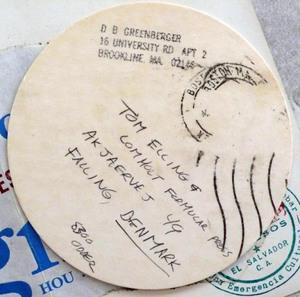 D B GREENBERGER
16 UNIVERSITY RD APT 2
BROOKLINE, MA. 02146
BOSTON MA
TOM ELLING &
FORMULAR PRESS
AKJAERVEJ 49
FALLING,
8300
ODDER
DENMARK
OS
EL SALVADOR
C. A.
Emergencia Cultur
HOU